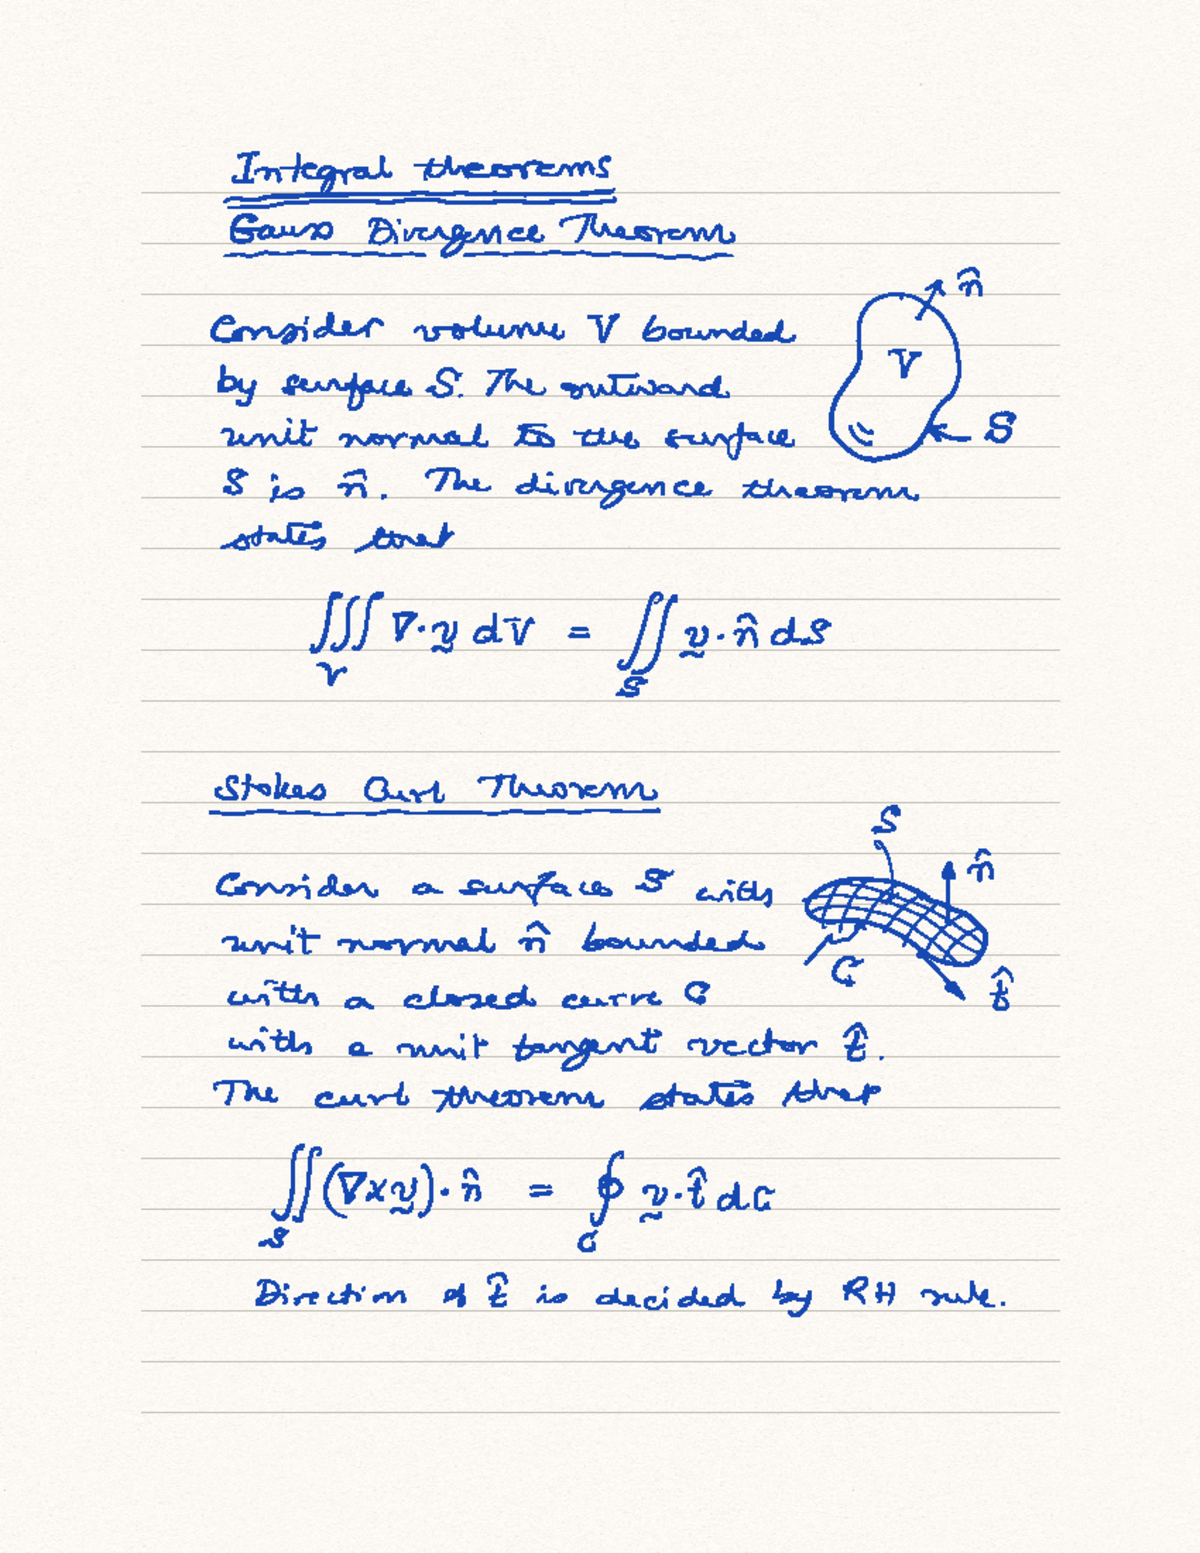 Integral theorems
Gauss Divergence Theorem
n̂
Consider volume V bounded
V
by surface S. The outward
unit normal to the surface
S
S is n̂. The divergence theorem
states that
∭_V ∇·v̰ dV = ∬_S v̰·n̂ dS
Stokes Curl Theorem
S
n̂
Consider a surface S with
unit normal n̂ bounded
C
with a closed curve C
t̂
with a unit tangent vector t̂.
The curl theorem states that
∬_S (∇×v̰)·n̂ = ∮_C v̰·t̂ dC
Direction of t̂ is decided by RH rule.